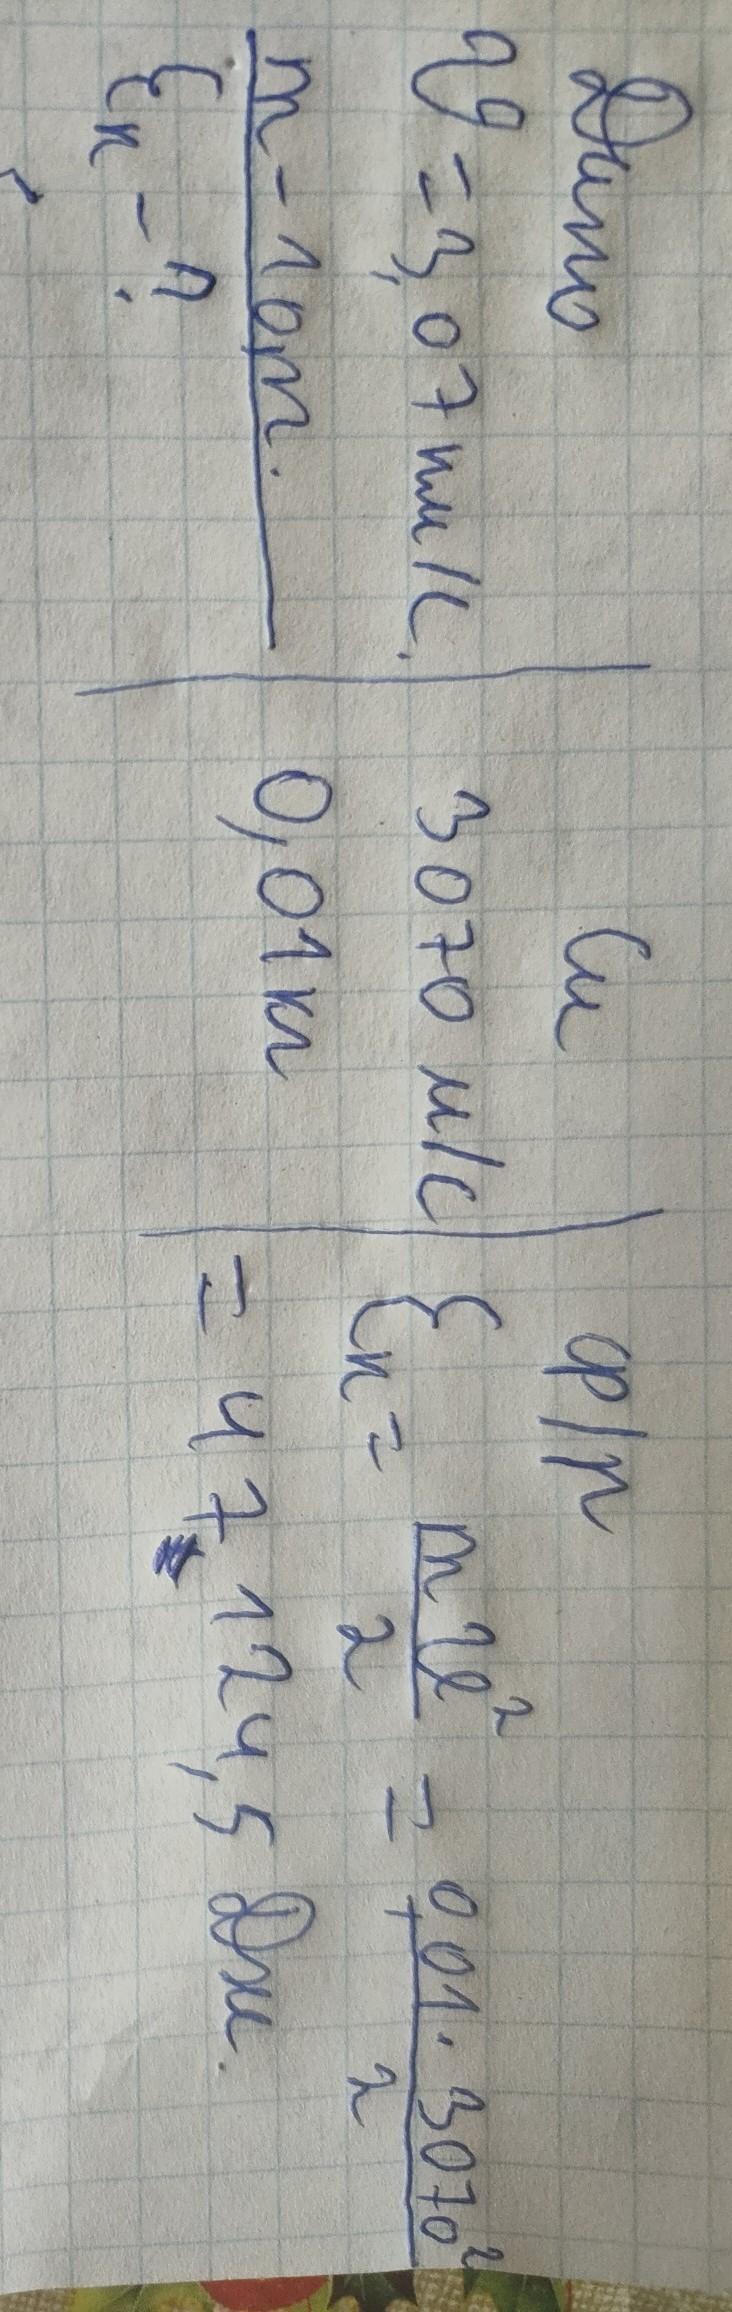 Дано
V = 3,07 км/с.
m - 10 г.
Eк - ?
Си
3070 м/с
0,01 кг
ф/р
Eк = mV²/2 = 0,01 · 3070²/2
= 47124,5 Дж.